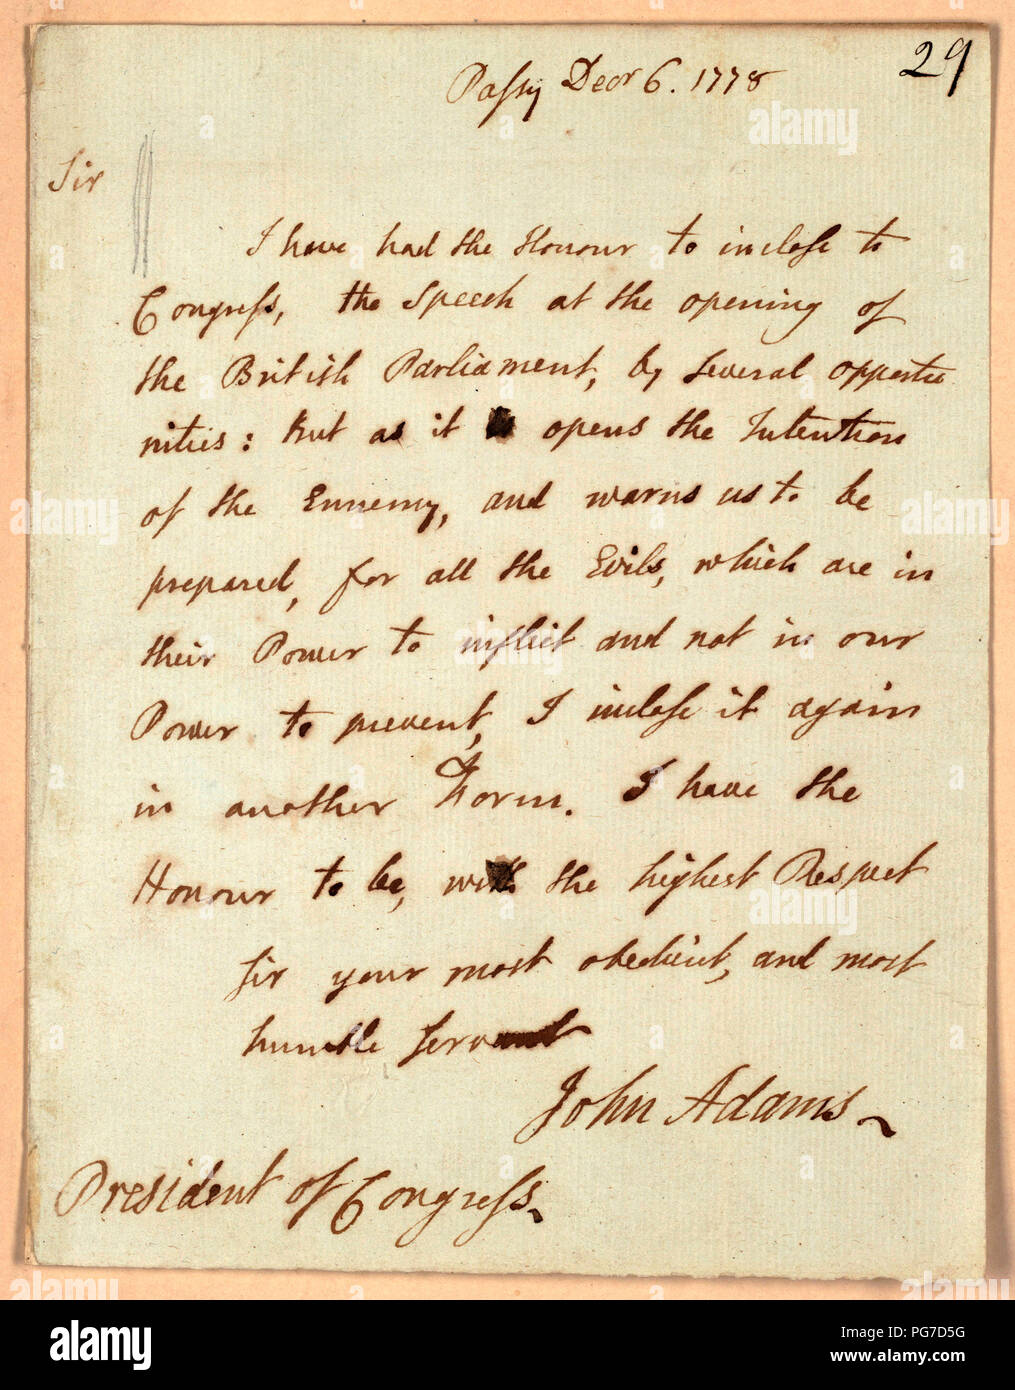 29
Passy Decr 6. 1778
Sir
I have had the Honour to inclose to
Congress, the Speech at the opening of
the British Parliament, by several opportu
nities: But as it opens the Intention
of the Ennemy, and warns us to be
prepared, for all the Evils, which are in
their Power to inflict and not in our
Power to prevent, I inclose it again
in another Form. I have the
Honour to be, with the highest Respect
Sir your most obedient, and most
humble Servant
John Adams
President of Congress
alamy
Image ID: PG7D5G
www.alamy.com